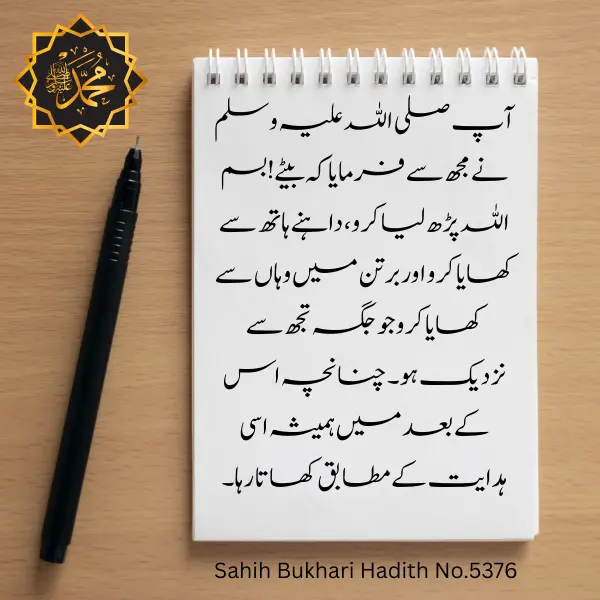 محمد
صلى الله عليه وسلم
آپ صلی اللہ علیہ وسلم
نے مجھ سے فرمایا کہ بیٹے! بسم
اللہ پڑھ لیا کرو، داہنے ہاتھ سے
کھایا کرو اور برتن میں وہاں سے
کھایا کرو جو جگہ تجھ سے
نزدیک ہو۔ چنانچہ اس
کے بعد میں ہمیشہ اسی
ہدایت کے مطابق کھاتا رہا۔
Sahih Bukhari Hadith No.5376